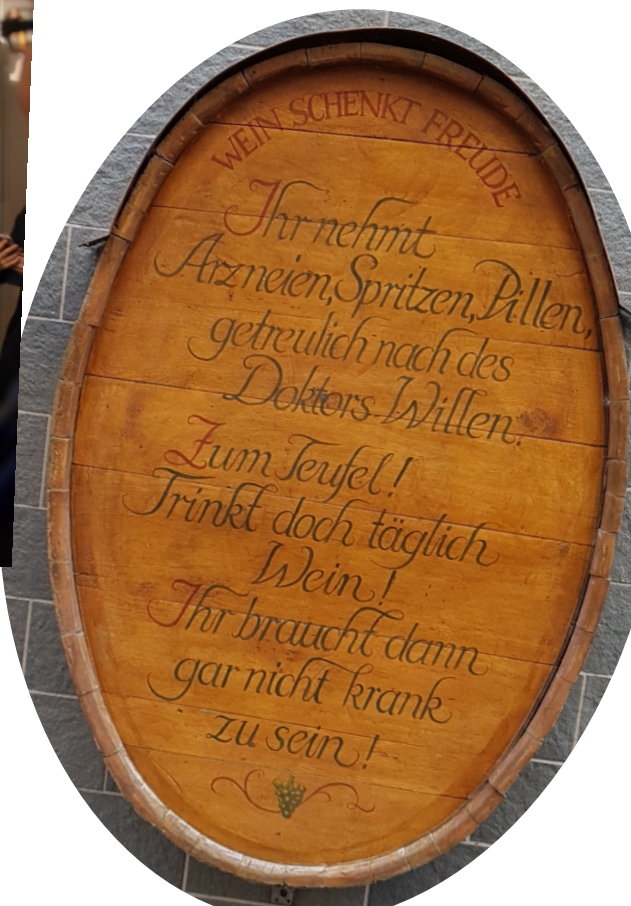 WEIN SCHENKT FREUDE
Ihr nehmt
Arzneien, Spritzen, Pillen,
getreulich nach des
Doktors Willen.
Zum Teufel!
Trinkt doch täglich
Wein!
Ihr braucht dann
gar nicht krank
zu sein!